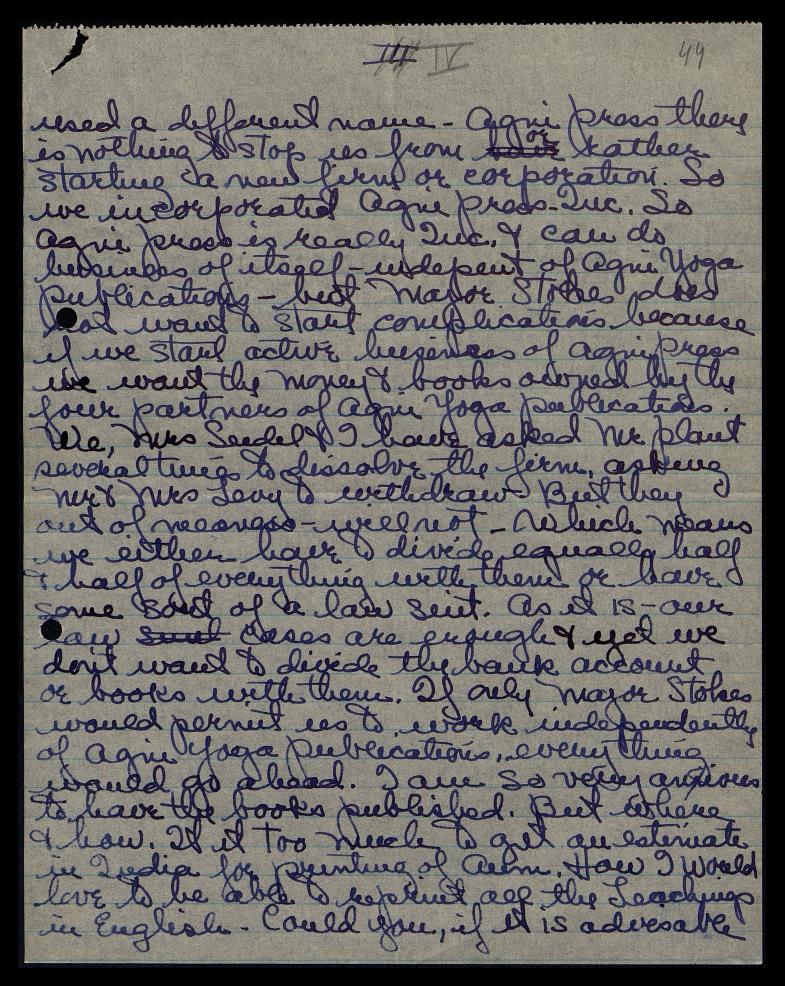 III IV 49
used a different name - Agni press there
is nothing to stop us from or rather
starting a new firm or corporation. So
we incorporated Agni press-Inc. So
Agni press is really Inc. & can do
business of itself - indepent of Agni Yoga
publications - but Major Stokes does
not want to start complications because
if we start active business of Agni press
we want the money & books owned by the
four partners of Agni Yoga publications.
We, Mrs Seidel & I have asked Mr plant
several times to dissolve the firm, asking
Mr & Mrs Levy to withdraw. But they
out of meaness - will not - Which means
we either have to divide equally half
& half of everything with them or have
some sort of a law suit. As it is - our
law suit cases are enough & yet we
don't want to divide the bank account
or books with them. If only Major Stokes
would permit us to work independently
of Agni Yoga publications, everything
would go ahead. I am so very anxious
to have the books published. But where
& how. Is it too much to get an estimate
in India for printing of Aum. How I would
love to be able to reprint all the Teachings
in English - Could you, if it is advisable